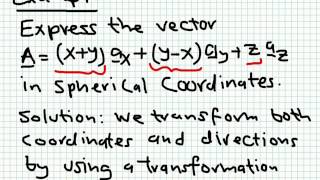 Express the vector
A = (x+y) ax + (y-x) ay + z az
in spherical coordinates.
Solution: we transform both
coordinates and directions
by using a transformation